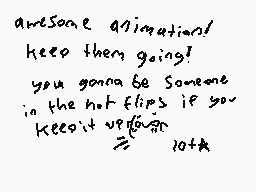 awesome animation!
keep them going!
you gonna be someone
in the hot flips if you
keep it up
10+★